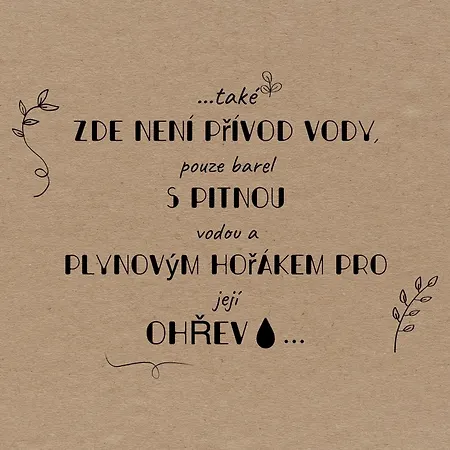 ...také
ZDE NENÍ PŘÍVOD VODY,
pouze barel
S PITNOU
vodou a
PLYNOVÝM HOŘÁKEM PRO
její
OHŘEV...